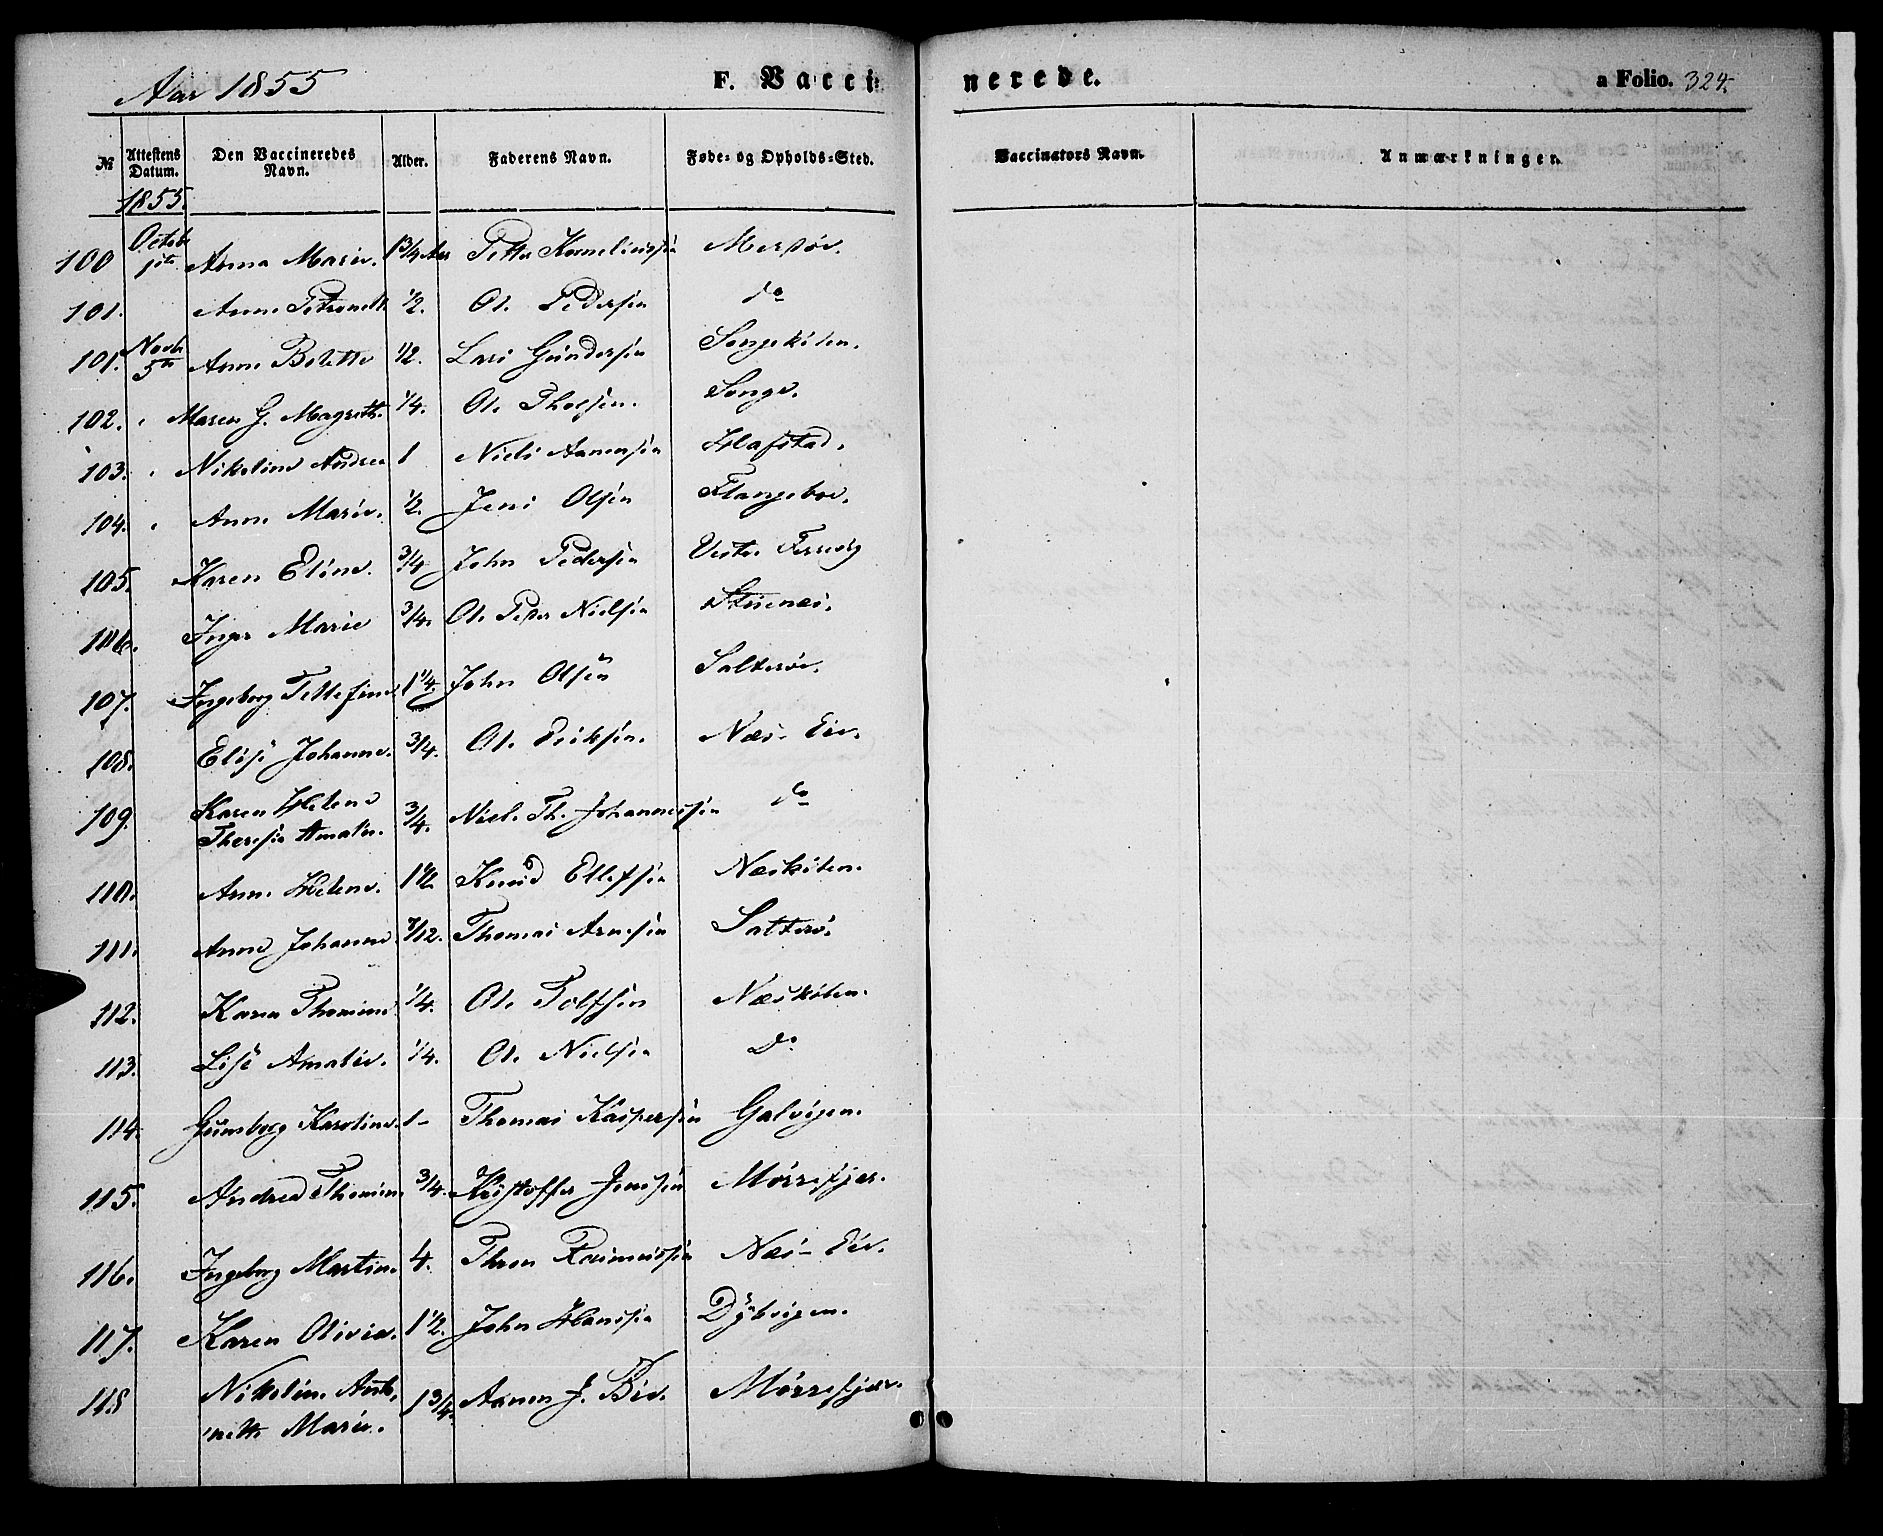 Aar 1855 F. Vaccinerede. a Folio. 324.
№ Attestens Datum. Den Vaccineredes Navn. Alder. Faderens Navn. Føde- og Opholds-Sted. Vaccinators Navn. Anmærkninger.
1855.
100 Octob 1ste Anna Marie. 1 3/4 Aar Petter Korneliussen
101. Anne Petronell 1/2. Ol. Pedersen do
101. Novb 5te Anne Bolette 1/2. Lars Gundersen Songekilen.
102. Maren G. Magreth. 1/4. Ol. Songe.
103. Nikoline Andrea 1 Niels Aanensen Hafstad.
104. Anne Marie. 1/2. Jens Olsen Flangeboe.
105. Karen Eline. 3/4 John Pedersen Vestre
106. Inger Marie 3/4. Ol. Peter Nielsen Stuenes.
107. Ingeborg Tellefine 1 1/4. John Olsen Salterøe.
108. Elise Johanne. 3/4. Ol. Eriksen. Næs-Eie.
109. Karen Helene Theresie Amalie. 3/4. Niel. Th. Johannessen do
110. Anne Helene. 1 1/2 Knud Ellefsen Næskilen.
111. Anne Johanne 7/12. Thomas Arnesen Salterø.
112. Karen Thomine 1/4. Ol. Tolfsen Næskilen.
113. Lise Amalie. 1/4. Ol. Nielsen Do
114. Gunborg Karoline. 1- Thomas Kaspersen Galvigen.
115. Andrea Thomine 3/4. Kristoffer Jensen Mørrefjær.
116. Ingeborg Martine 4. Thron Rasmussen Næs-Eie.
117. Karen Olivia. 1 1/2. John Hanssen Dybvigen.
118 Nikoline Anto- 1 3/4. Aanon J. Bie. Mørrefjær.
nette Marie.